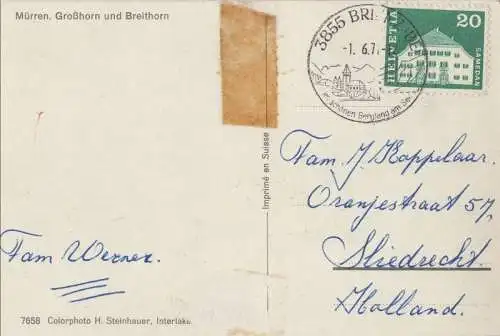 Mürren, Großhorn und Breithorn
3855 BRI
-1. 6.7
schönen Bergland am See
HELVETIA
20
SAMEDAN
Imprimé en Suisse
Fam. J Koppelaar.
Oranjestraat 57,
Sliedrecht.
Holland.
Fam Werner.
7658 Colorphoto H. Steinhauer, Interlake